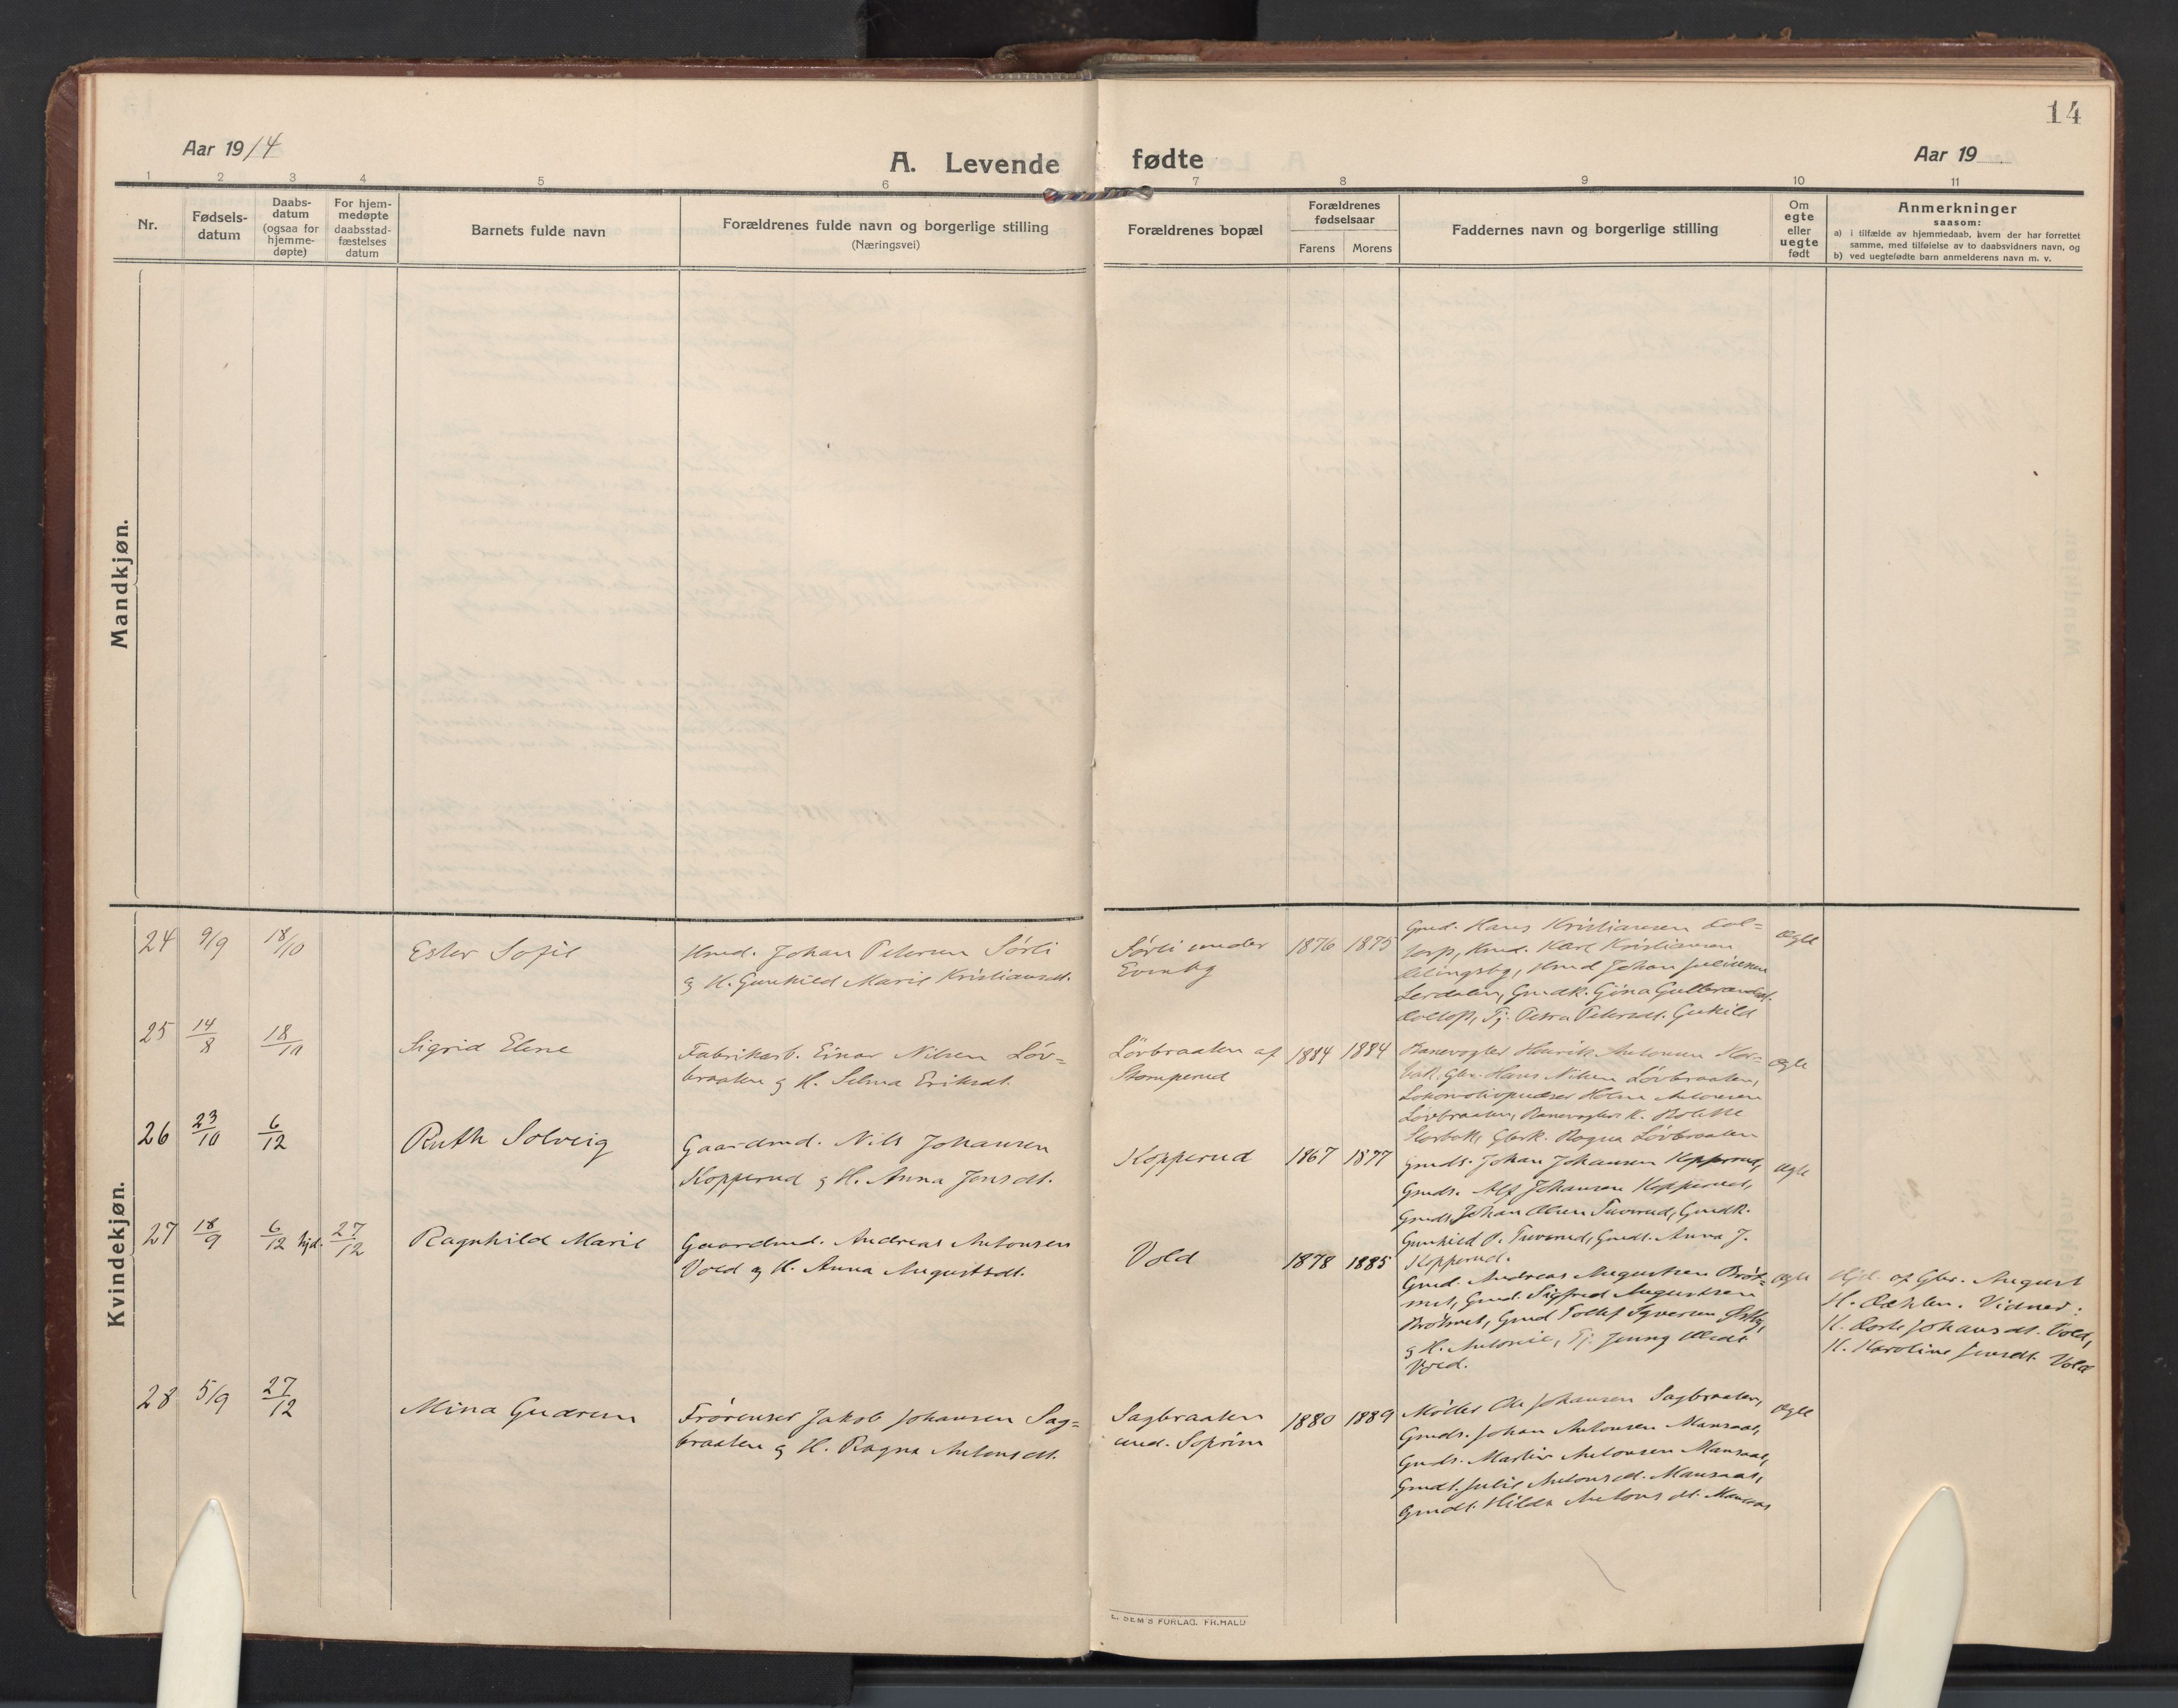 14
Aar 1914
A. Levende fødte
Aar 19
1 2 3 4 5 6 7 8 9 10 11
Nr.
Fødsels-
datum
Daabs-
datum
(ogsaa for
hjemme-
døpte)
For hjem-
medøpte
daabsstad-
fæstelses
datum
Barnets fulde navn
Forældrenes fulde navn og borgerlige stilling
(Næringsvei)
Forældrenes bopæl
Forældrenes
fødselsaar
Farens Morens
Faddernes navn og borgerlige stilling
Om
egte
eller
uegte
født
Anmerkninger
saasom:
a) i tilfælde av hjemmedaab, hvem der har forrettet
samme, med tilføielse av to daabsvidners navn, og
b) ved uegtefødte barn anmelderens navn m. v.
Mandkjøn.
Kvindekjøn.
24 9/9 18/10
Ester Sofie
Hmd. Johan Petersen Sørli
og H. Gunhild Marie Kristiansdt.
Sørli under
Evenby
1876 1875
Gmd. Hans Kristiansen Dol-
torp, Hmd. Karl Kristiansen
Hmd Johan Juliussen
Lerdalen, Gmdk. Gina Gulbrandsdt.
Tj. Petra Petersdt.
Ægte
25 14/8 18/10
Sigrid Elene
Fabrikarb. Einar Nilsen Løv-
braaten og H. Selma Eriksdt.
Løvbraaten af
Stomperud
1884 1884
Banevogter Henrik Antonsen Kor-
bak, Gbr. Hans Nilsen Løvbraaten,
Lokomotivpudser Holm Antonsen
Løvbraaten, Banevogters K.
Ragna Løvbraaten
Ægte
26 23/10 6/12
Ruth Solveig
Gaardmd. Nils Johansen
Kopperud og H. Anna Jensdt.
Kopperud
1867 1877
Gmds. Johan Johansen Kopperud,
Gmds. Alf Johansen Kopperud,
Gmds. Johan Olsen Tuverud, Gmdk.
Gunhild P. Tuverud, Gmdt. Anna J.
Kopperud.
Ægte
27 18/9 6/12 hjd. 27/12
Ragnhild Marie
Gaardmd. Andreas Antonsen
Vold og H. Anna Augustsdt.
Vold
1878 1885
Gmd. Andreas Augustsen Brøt-
met, Gmd. Sigfred Augustsen
Brøtmet, Gmd Tollef Syversen Østby,
og H. Antonie, Tj. Jenny Olsdt
Vold.
Ægte
Hjd. af Gbr. August
H. Dæhlen. Vidner:
K. Dorte Johansdt. Vold,
K. Karoline Jensdt. Vold
28 5/9 27/12
Mina Gudrun
Frørenser Jakob Johansen Sag-
braaten og H. Ragna Antonsdt.
Sagbraaten
und. Soprim
1880 1889
Møller Ole Johansen Sagbraaten,
Gmds. Johan Antonsen Mansaas,
Gmds. Martin Antonsen Mansaas,
Gmdt. Julie Antonsdt. Mansaas,
Gmdt. Hilda Antonsdt. Mansaas
Ægte
E. SEM'S FORLAG. FR.HALD